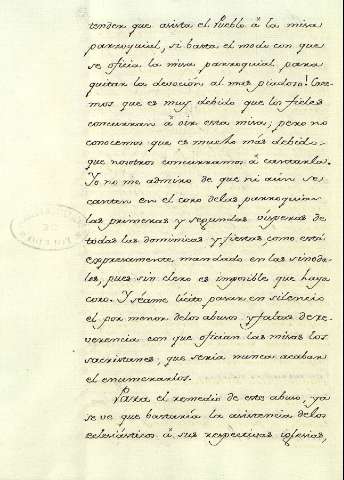 tender que asista el Pueblo á la misa
parroquial, si basta el modo con que
se oficia la misa parroquial para
quitar la devoción al mas piadoso! Cree-
mos que es muy debido que los fieles
concurran á oir esta misa; pero no
conocemos que es mucho más debido
que nosotros concurramos á cantarla.
Yo no me admiro de que ni aún se
canten en el coro delas parroquias
las primeras y segundas vísperas de
todas las dominicas y fiestas como está
expresamente mandado en las sinoda-
les, pues sin clero es imposible que haya
coro. Y séame lícito pasar en silencio
el por menor delos abusos y faltas de re-
verencia con que ofician las misas los
sacristanes, que seria nunca acabar
el enumerarlos.
Para el remedio de este abuso, ya
se ve que bastaría la asistencia delos
eclesiásticos á sus respectivas iglesias,